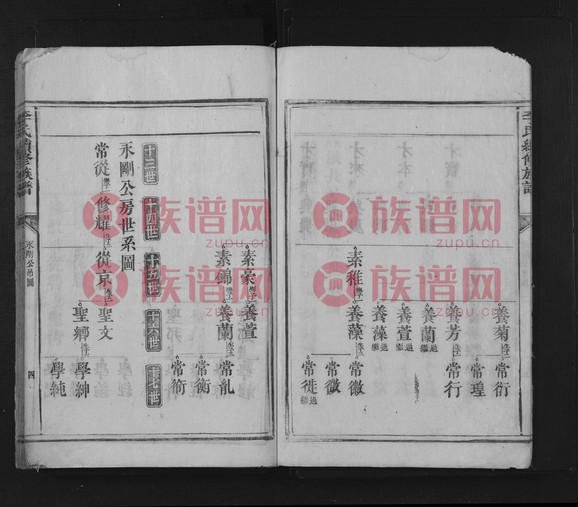 李氏續修族譜
養菊 常衍
常瑝
養芳 常行
養蘭
養萱
養藻 過繼
素稚 養藻 常徽
常徵
常徙 過繼
素豪 養萱
素錦 養蘭 常亂
常衡
常術
十三世 十四世 十五世 十六世 十七世
永剛公房世系圖
常從 修耀 從京 聖文
聖鄉 學紳
學純
李氏續修族譜
永剛公吊圖
四
族谱网
www.zupu.cn